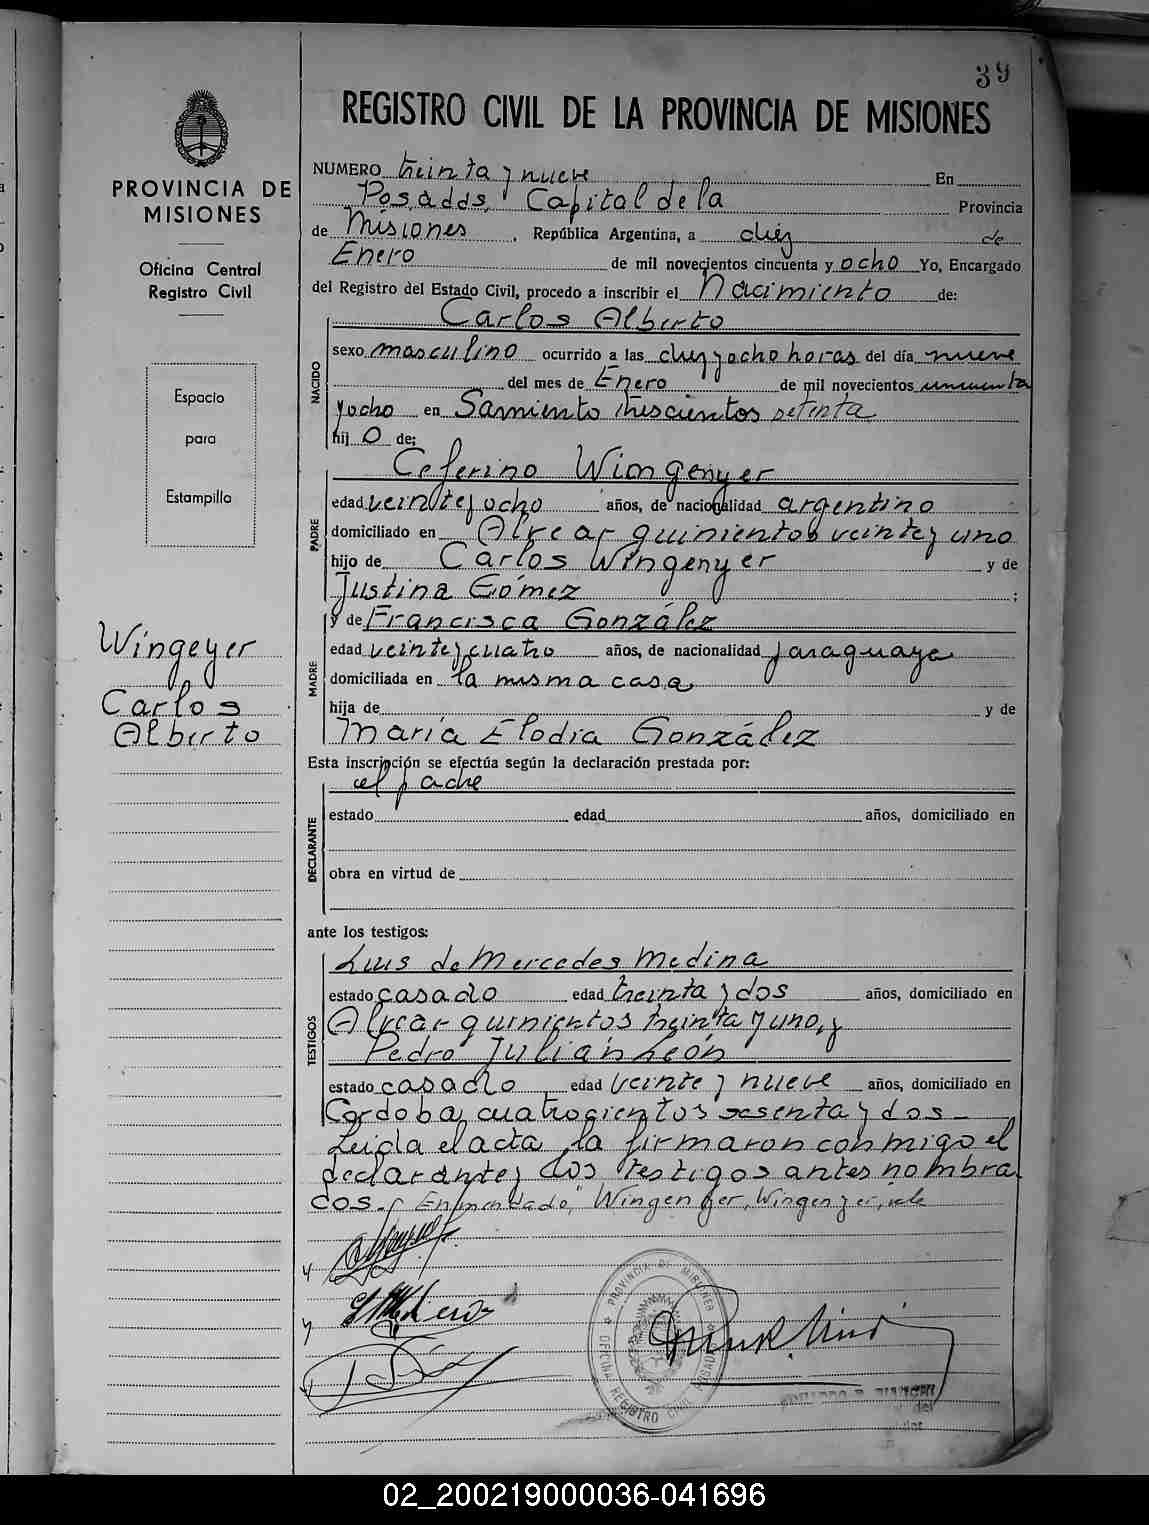 39
REGISTRO CIVIL DE LA PROVINCIA DE MISIONES
PROVINCIA DE
MISIONES
Oficina Central
Registro Civil
Espacio
para
Estampilla
Wingeyer
Carlos
Alberto
NUMERO treinta y nueve En
Posadas, Capital de la Provincia
de Misiones, República Argentina, a diez de
Enero de mil novecientos cincuenta y ocho Yo, Encargado
del Registro del Estado Civil, procedo a inscribir el Nacimiento de:
NACIDO
Carlos Alberto
sexo masculino ocurrido a las diez y ocho horas del día nueve
del mes de Enero de mil novecientos cincuenta
y ocho en Sarmiento trescientos setenta
hij o de:
PADRE
Ceferino Wingenyer
edad veinte y ocho años, de nacionalidad argentino
domiciliado en Alvear quinientos veinte y uno
hijo de Carlos Wingenyer y de
Justina Gómez ;
y de Francisca González
MADRE
edad veinte y cuatro años, de nacionalidad paraguaya
domiciliada en la misma casa
hija de y de
María Elodia González
Esta inscripción se efectúa según la declaración prestada por:
el padre
DECLARANTE
estado edad años, domiciliado en
obra en virtud de
ante los testigos:
TESTIGOS
Luis de Mercedes Medina
estado casado edad treinta y dos años, domiciliado en
Alvear quinientos treinta y uno, y
Pedro Julián León
estado casado edad veinte y nueve años, domiciliado en
Córdoba cuatrocientos sesenta y dos _
Leida el acta, la firmaron conmigo el
declarante y los testigos antes nombra
dos. Enmendado, "Wingenyer, Wingenyer, vale
PROVINCIA DE MISIONES
OFICINA REGISTRO CIVIL POSADAS
02_200219000036-041696